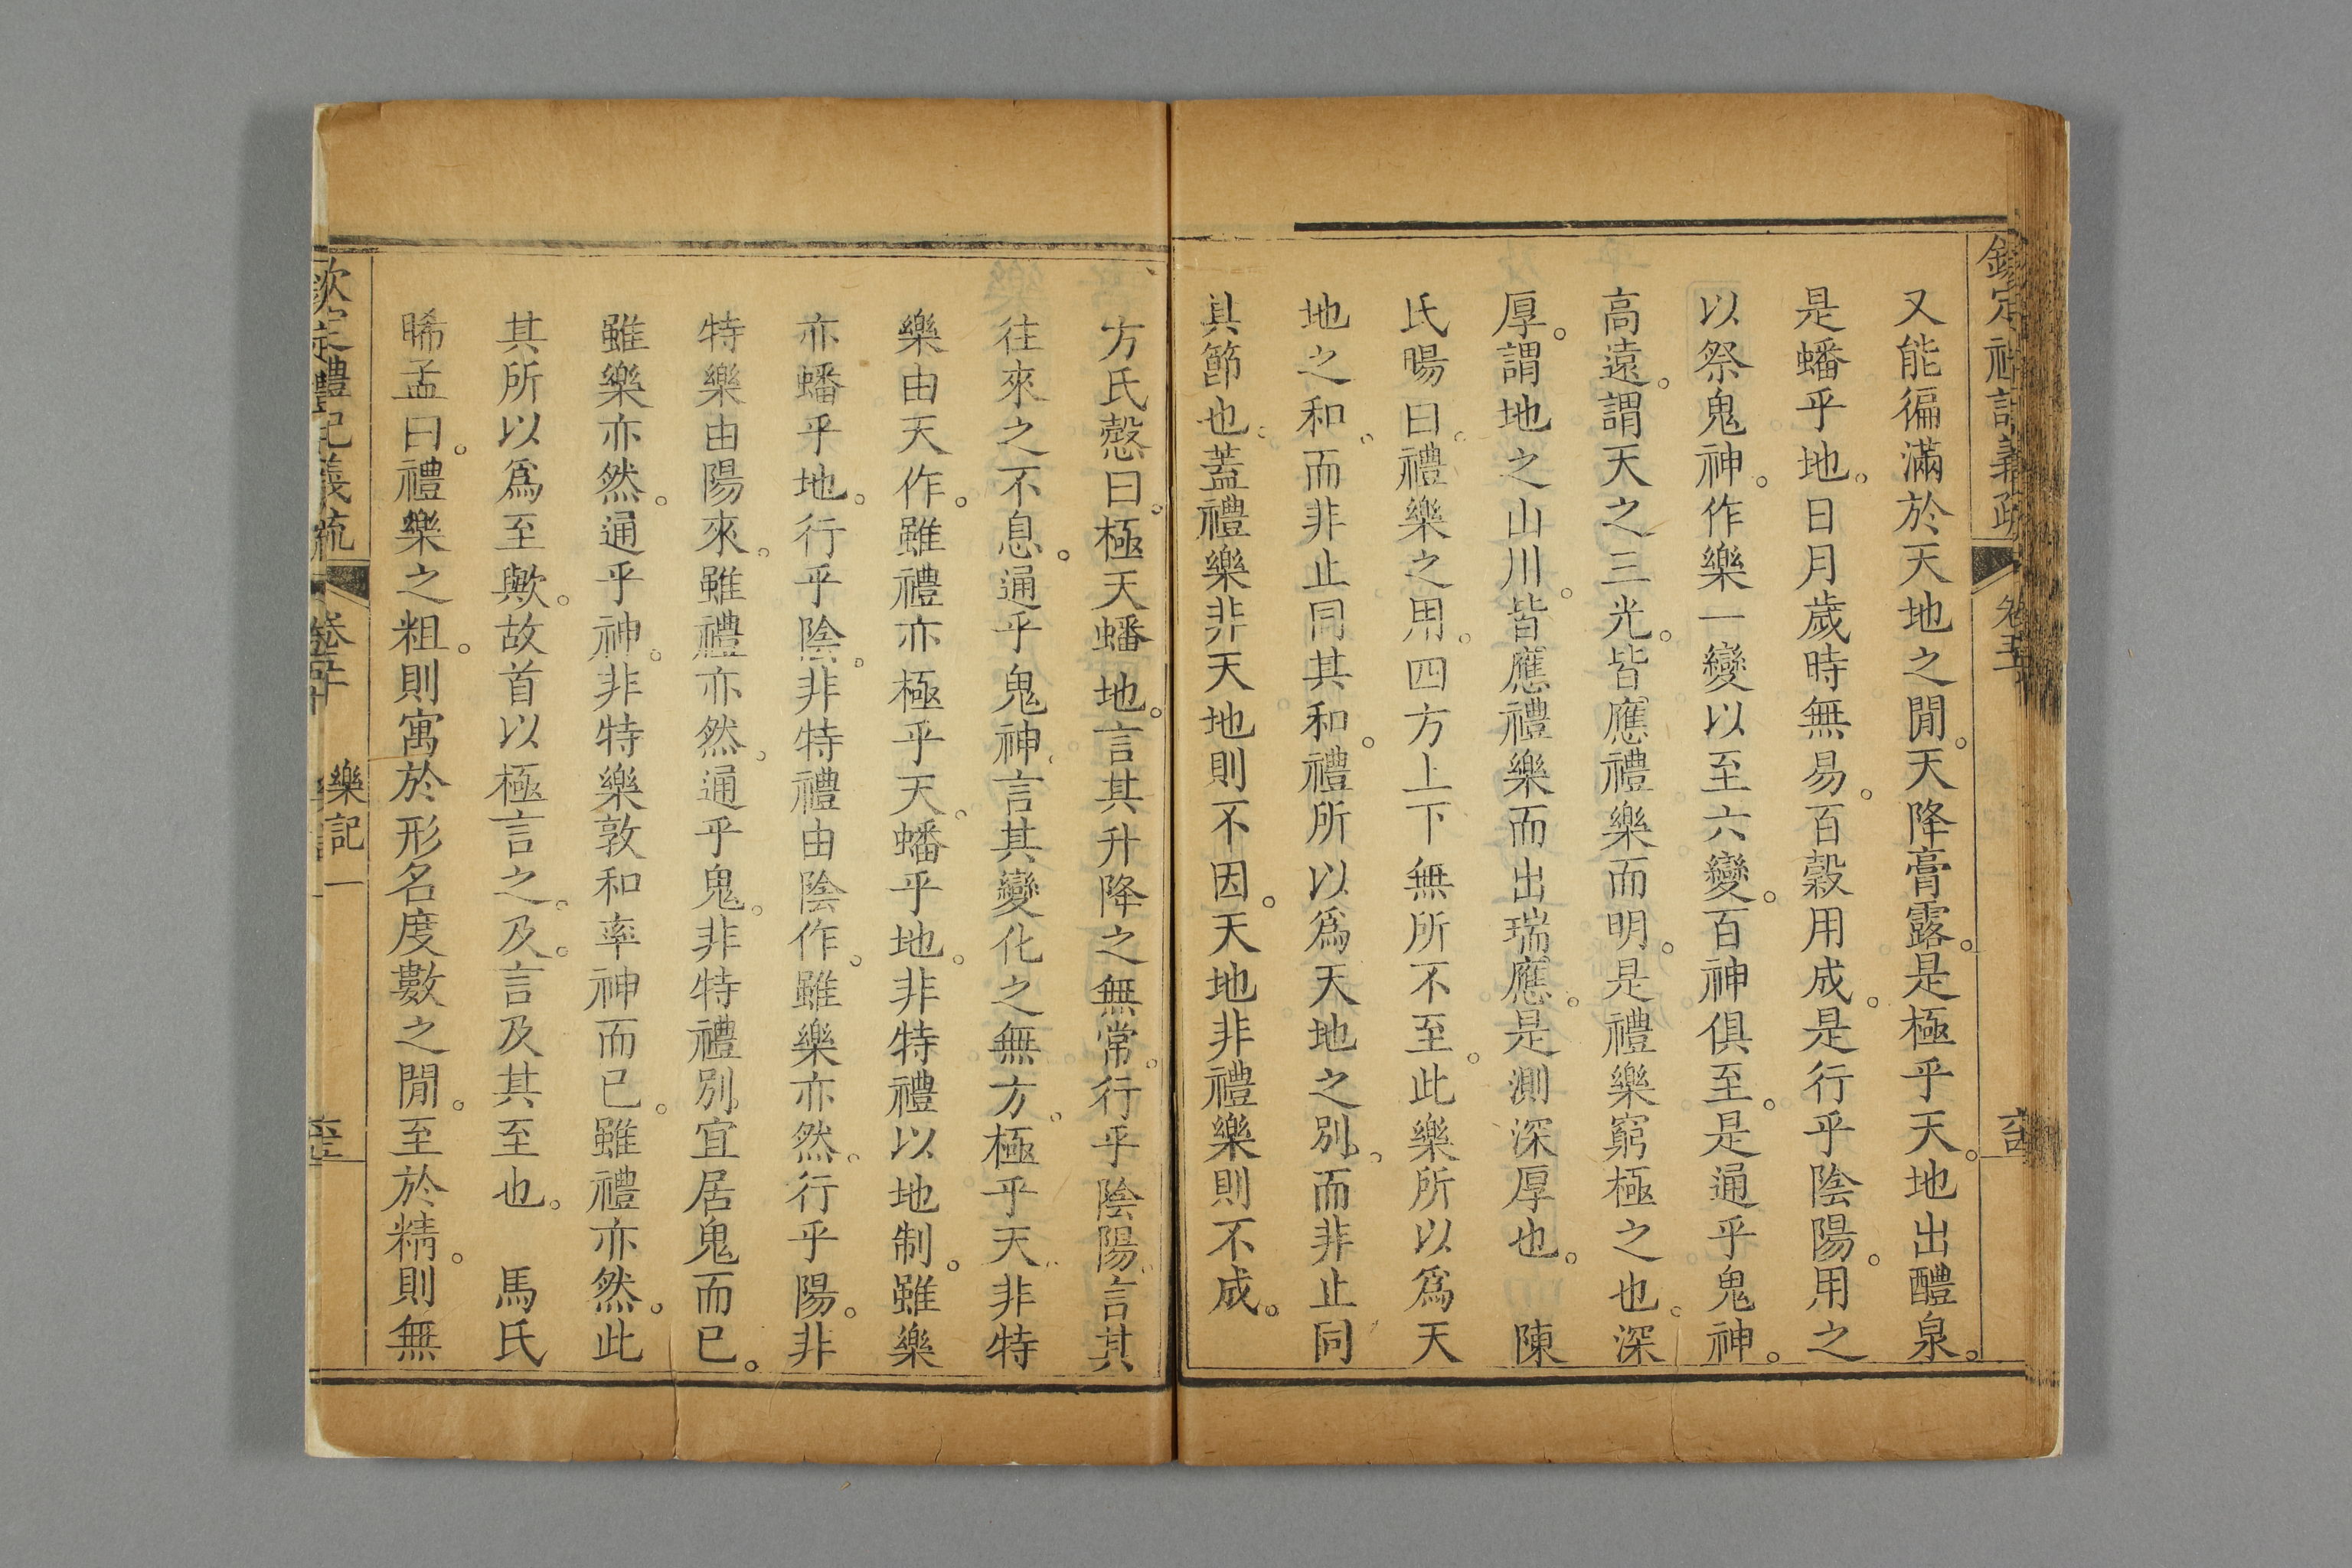 又能徧滿於天地之閒。天降膏露。是極乎天。地出醴泉。
是蟠乎地。日月歲時無易。百穀用成。是行乎陰陽。用之
以祭鬼神。作樂一變以至六變。百神俱至。是通乎鬼神。
高遠。謂天之三光。皆應禮樂而明。是禮樂窮極之也。深
厚。謂地之山川。皆應禮樂而出瑞應。是測深厚也。 陳
氏暘曰。禮樂之用。四方上下無所不至。此樂所以爲天
地之和。而非止同其和。禮所以爲天地之別。而非止同
其節也。蓋禮樂非天地則不因。天地非禮樂則不成。
方氏慤曰。極天蟠地。言其升降之無常。行乎陰陽。言其
往來之不息。通乎鬼神。言其變化之無方。極乎天。非特
樂由天作。雖禮亦極乎天。蟠乎地。非特禮以地制。雖樂
亦蟠乎地。行乎陰。非特禮由陰作。雖樂亦然。行乎陽。非
特樂由陽來。雖禮亦然。通乎鬼。非特禮別宜居鬼而已。
雖樂亦然。通乎神。非特樂敦和率神而已。雖禮亦然。此
其所以爲至歟。故首以極言之。及。言及其至也。 馬氏
晞孟曰。禮樂之粗。則寓於形名度數之閒。至於精。則無
欽定禮記義疏 卷五十 樂記一